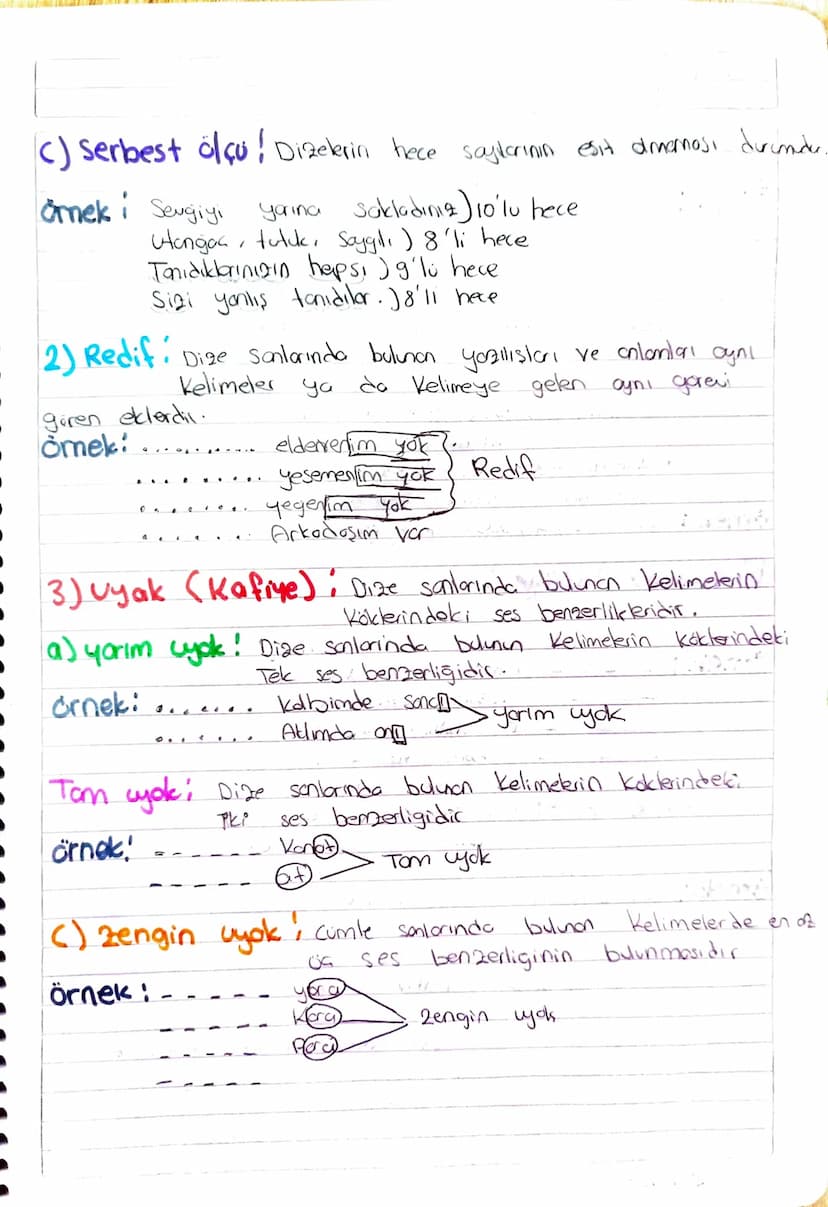 C) Serbest ölçü! Dizelerin hece sayılarının eşit olmaması durumudur.
Örnek: Sevgiyi yarına sakladınız) 10'lu hece
Utangaç, tutuk, saygılı ) 8'li hece
Tanıdıklarınızın hepsi ) 9'lu hece
Sizi yanlış tanıdılar. ) 8'li hece
2) Redif: Dize sonlarında bulunan yazılışları ve anlamları aynı
kelimeler ya da kelimeye gelen aynı görevi
gören eklerdir.
Örnek: ............ eldevenim yok
......... yesemenim yok } Redif
........ yegenim yok
....... Arkadaşım var
3) Uyak (Kafiye): Dize sonlarında bulunan kelimelerin
Köklerindeki ses benzerlikleridir.
a) yarım uyak! Dize sonlarında bulunun kelimelerin köklerindeki
Tek ses benzerligidir.
Örnek: ....... Kalbimde sancı
....... Aklımda anı yarım uyak
Tam uyak: Dize sonlarında bulunan kelimelerin köklerindeki
iki ses benzerligidir
örnek! ------ Kanat
----- at Tam uyak
C) zengin uyak! Cümle sonlarında bulunan kelimelerde en az
üç ses benzerliginin bulunmasıdır
örnek! ----- yara
----- Kara zengin uyak
----- Para
-----